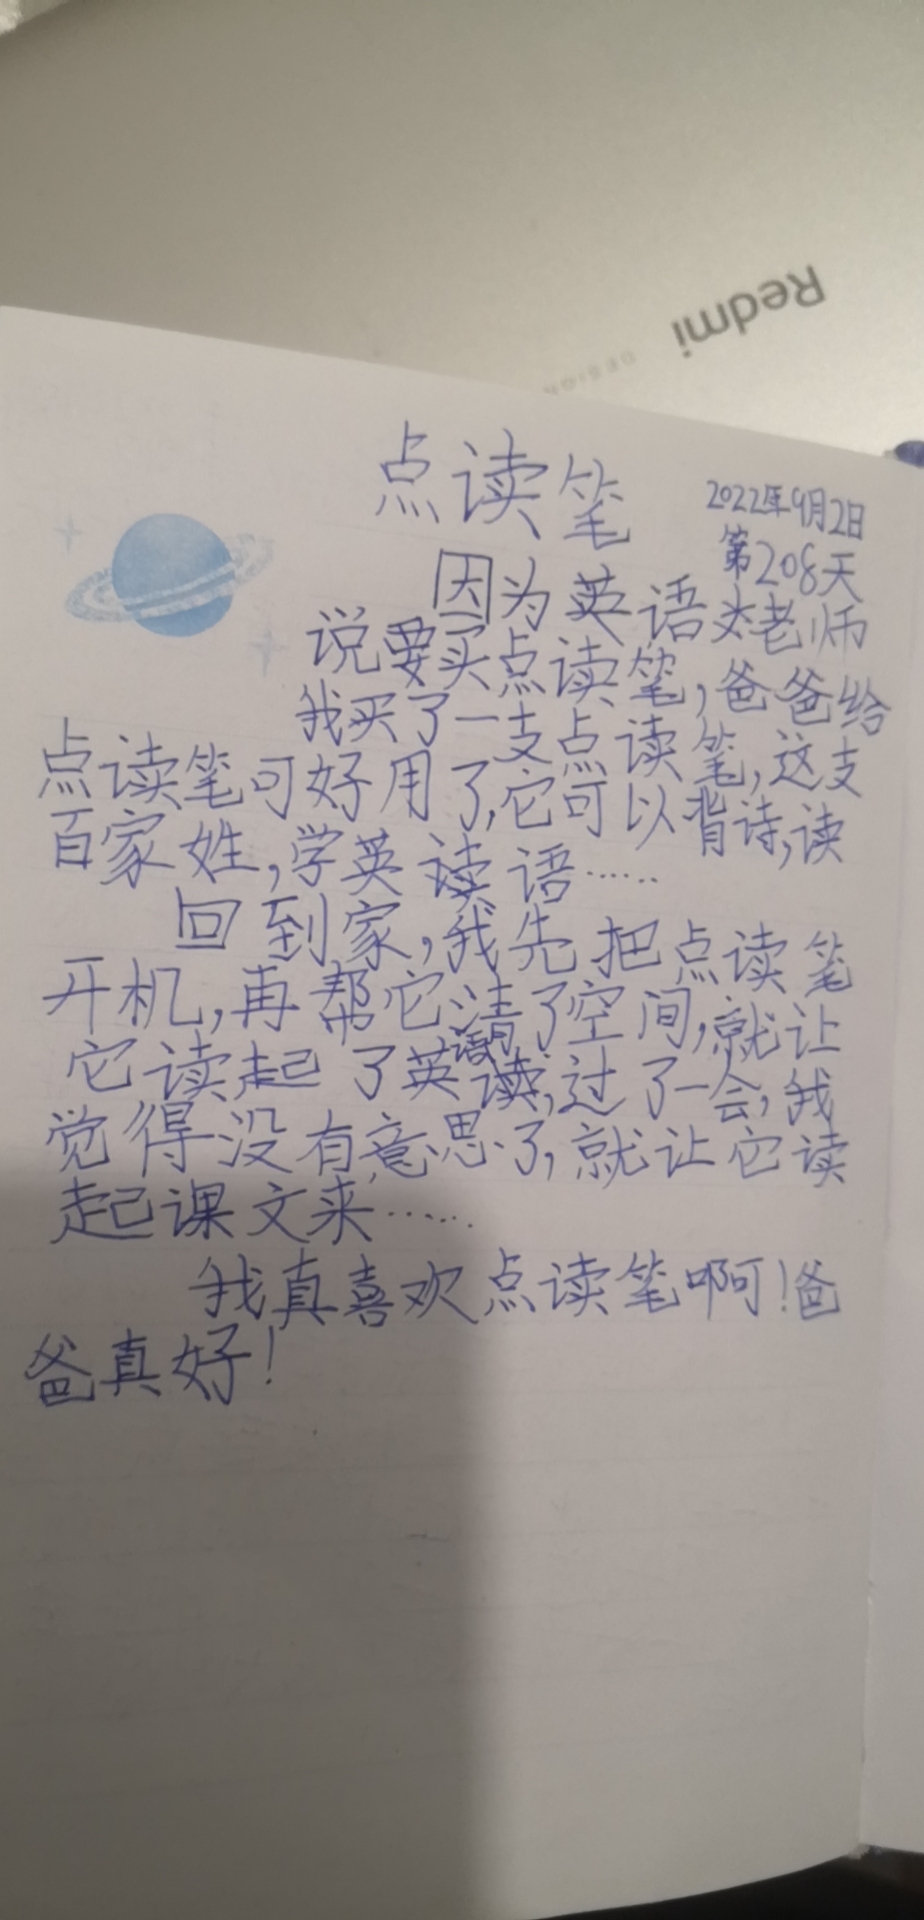 Redmi
DESIGN
点读笔
2022年9月2日
第208天
因为英语老师
说要买点读笔,爸爸给
我买了一支点读笔,这支
点读笔可好用了,它可以背诗,读
百家姓,学英语……
回到家,我先把点读笔
开机,再帮它清了空间,就让
它读起了英语,过了一会,我
觉得没有意思了,就让它读
起课文来……
我真喜欢点读笔啊!爸
爸真好!